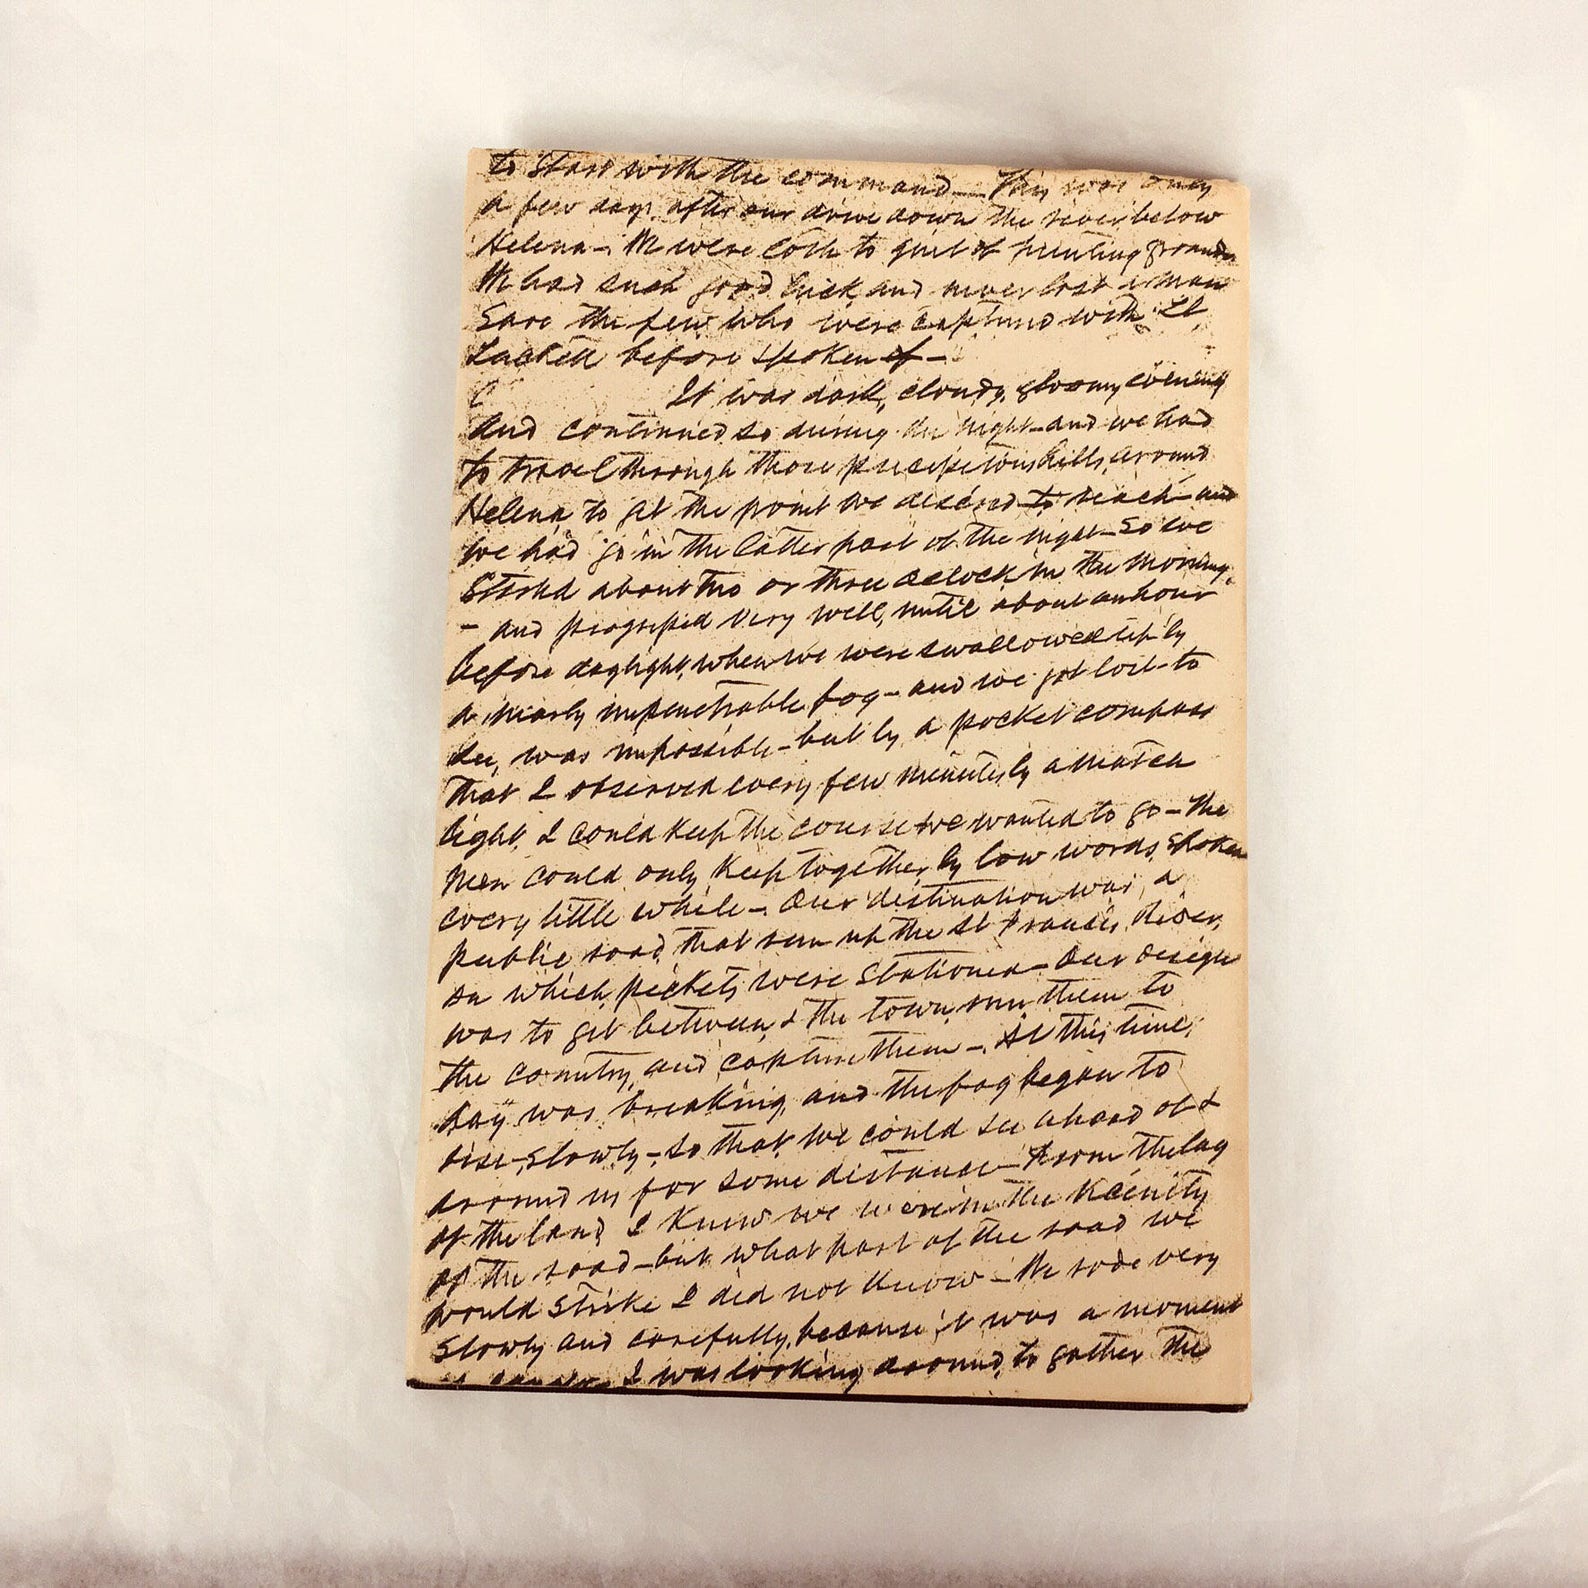 to start with the command — This was only
a few days after our drive down the river below
Helena — We were loth to quit of hunting grounds
We had such good luck and never lost a man
Save the few who were captured with Lt
Lackett before spoken of —
It was dark, cloudy, gloomy evening
and continued so during the night — and we had
to travel through those precipitous hills around
Helena to get the point we desired to reach — and
we had go in the latter part of the night — So we
Started about two or three oclock in the morning,
— and progressed very well, until about an hour
before daylight, when we were swallowed up by
a nearly impenetrable fog — and we got lost — to
see, was impossible — but by a pocket compass
that I observed every few minutes by a match
light, I could keep the course we wanted to go — The
men could only keep together by low words spoken
every little while — Our destination was a
public road that run up the St Francis River,
on which pickets were stationed — Our design
was to get between & the town run them to
the country, and capture them — At this time,
day was breaking, and the fog began to
rise, slowly — so that we could see ahead of &
around us for some distance — From the lay
of the land I knew we were in the vicinity
of the road — but what part of the road we
would strike I did not know — We rode very
slowly and carefully, because it was a moment
I was looking around, to gather the